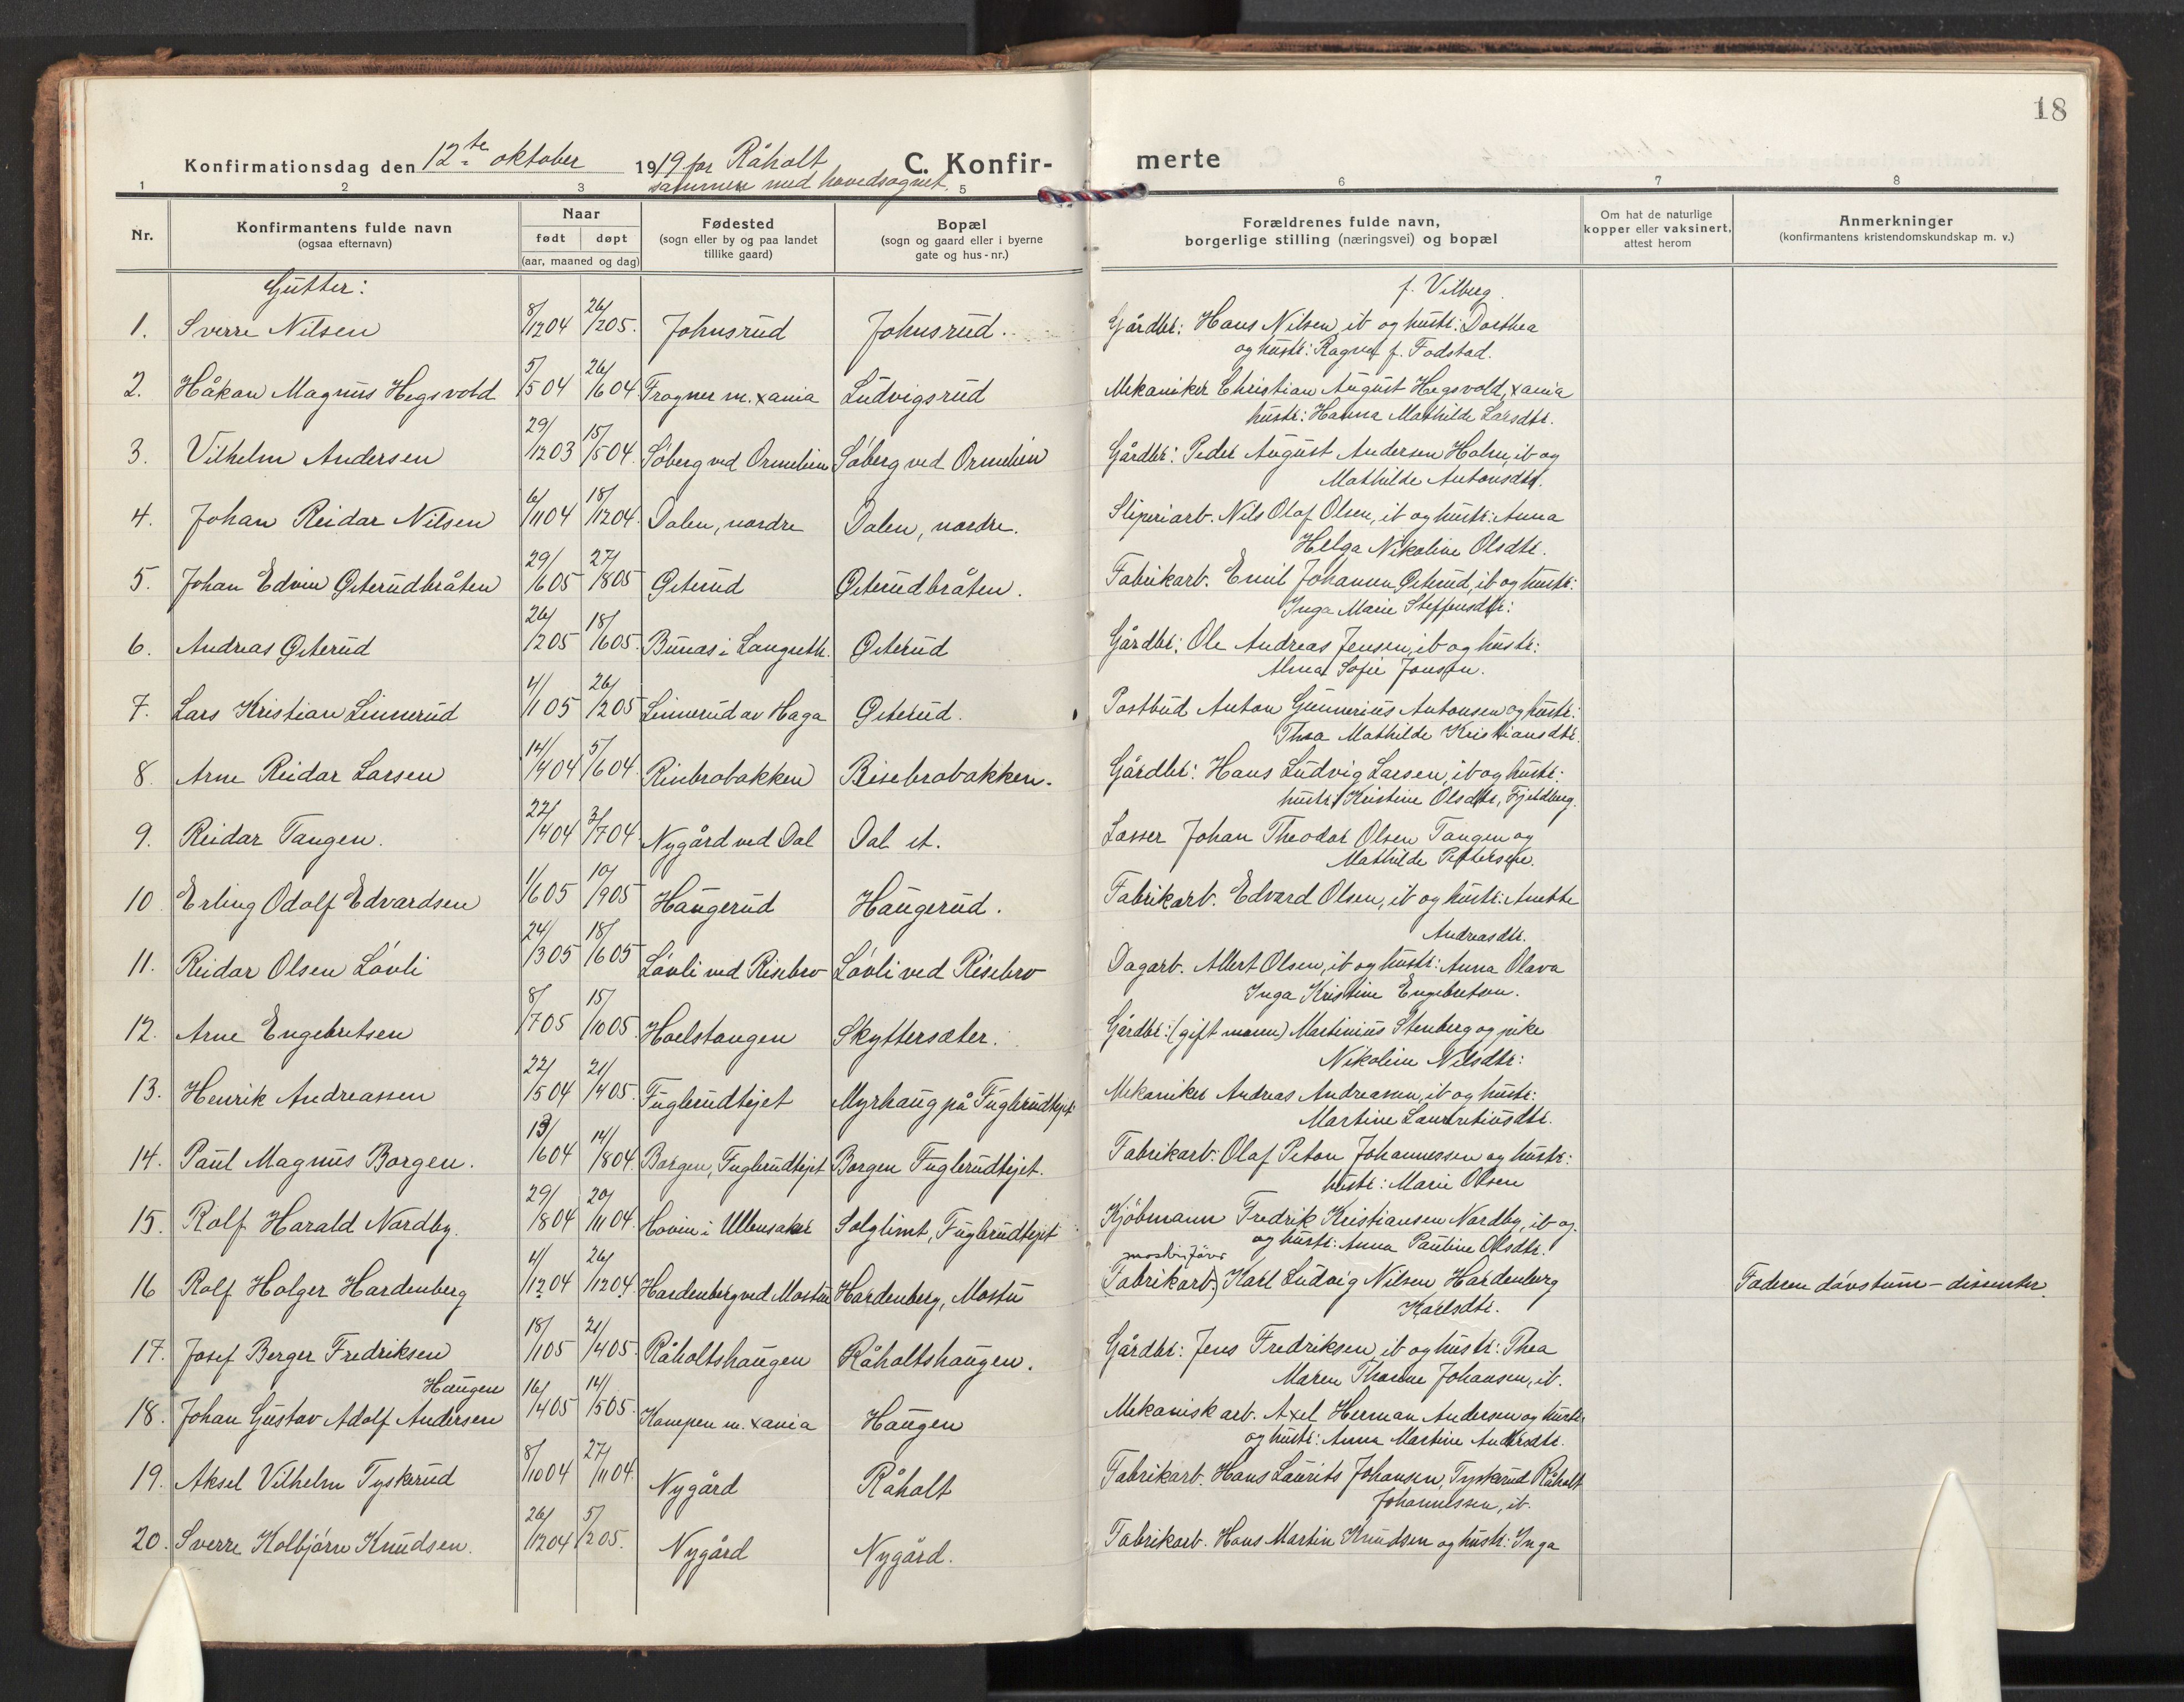 18
Konfirmationsdag den 12te oktober 1919 for Råholt C. Konfir-
merte
sammen med hovedsognet.
1 2 3 5 6 7 8
Nr.
Konfirmantens fulde navn
(ogsaa efternavn)
Naar
født døpt
(aar, maaned og dag)
Fødested
(sogn eller by og paa landet
tillike gaard)
Bopæl
(sogn og gaard eller i byerne
gate og hus-nr.)
Forældrenes fulde navn,
borgerlige stilling (næringsvei) og bopæl
Om hat de naturlige
kopper eller vaksinert,
attest herom
Anmerkninger
(konfirmantens kristendomskundskap m. v.)
Gutter:
f. Vilberg.
1. Sverre Nilsen 8/12 04 26/2 05. Johnsrud Johnsrud. Gårdbr: Hans Nilsen, ib og hustr: Dorthea
og hustr: Ragna f. Fodstad.
2. Håkon Magnus Hegsvold 5/5 04 26/6 04 Frogner m. xania Ludvigsrud Mekaniker Christian August Hegsvold, xania
hustr: Hanna Mathilde Larsdtr.
3. Vilhelm Andersen 29/12 03 15/5 04. Søberg ved Ormelien Søberg ved Ormelien Gårdbr: Peder August Andersen Holm, ib og
Mathilde Antonsdtr.
4. Johan Reidar Nilsen 6/11 04 18/12 04. Dalen, nordre Dalen, nordre. Sliperiarb. Nils Olaf Olsen, ib og hustr: Anna
Helga Nikoline Olsdtr.
5. Johan Edvin Østerudbråten 29/6 05 27/8 05 Østerud Østerudbråten. Fabrikarb. Emil Johansen Østerud, ib og hustr:
Inga Marie Steffensdtr:
6. Andreas Østerud 26/2 05 18/6 05. Bunæs i Langseth. Østerud Gårdbr: Ole Andreas Jensen, ib og hustr:
Alma Sofie Jonsen.
7. Lars Kristian Linnerud 4/1 05 26/2 05 Linnerud av Haga Østerud. Postbud Anton Gunnerius Antonsen og hustr:
Thea Mathilde Kristiansdtr.
8. Arne Reidar Larsen 14/4 04 5/6 04. Risebrobakken Risebrobakken. Gårdbr: Hans Ludvig Larsen, ib og hustr:
hustr: Kristine Olsdtr, Fjeldberg.
9. Reidar Tangen. 22/4 04 3/7 04. Nygård ved Dal Dal st. Lasser Johan Theodor Olsen Tangen og
Mathilde Pettersen.
10 Erling Odolf Edvardsen 1/6 05 10/9 05 Haugerud Haugerud. Fabrikarb. Edvard Olsen, ib og hustr: Anette
Andreasdtr.
11. Reidar Olsen Løvli 24/3 05 18/6 05 Løvli ved Risebro Løvli ved Risebro Dagarb. Albert Olsen, ib og hustr: Anna Olava
Inga Kristine Engebretsen.
12. Arne Engebretsen 8/7 05 15/10 05 Hoelstangen Skyttersæter. Gårdbr: (gift mann) Martinius Stenberg og pike
Nikoline Nilsdtr:
13. Henrik Andreassen 22/5 04 21/4 05. Fuglerudtejet Myrhaug på Fuglerudtejet Mekaniker Andreas Andreasen, ib og hustr:
Martine Laurentiusdtr.
14. Paul Magnus Borgen. 13/6 04 14/8 04. Borgen, Fuglerudtejet Borgen Fuglerudtejet. Fabrikarb: Olaf Peton Johannessen og hustr:
hustr: Marie Olsen
15. Rolf Harald Nordby. 29/8 04 20/11 04. Hovin i Ullensaker Solglimt, Fuglerudtejet Kjøbmann Fredrik Kristiansen Nordby, ib og.
og hustr: Anna Pauline Olsdtr.
maskinfører
16 Rolf Holger Hardenberg 4/12 04 26/12 04. Hardenberg ved Mostu Hardenberg, Mostu (Fabrikarb.) Karl Ludvig Nilsen Hardenberg Faderen døvstum - dissenter.
Karlsdtr.
17. Josef Berger Fredriksen 18/1 05 21/4 05. Råholtshaugen Råholtshaugen. Gårdbr: Jens Fredriksen, ib og hustr: Thea
Haugen Maren Thorine Johansen, ib.
18. Johan Gustav Adolf Andersen 16/4 05 14/5 05. Kampen m. xania Haugen Mekanisk arb. Axel Herman Andersen og hustr
og hustr: Anna Martine Andersdtr.
19. Aksel Vilhelm Tyskerud 8/10 04 27/11 04. Nygård Råholt Fabrikarb. Hans Laurits Johansen, Tyskerud Råholt
Johannessen, ib.
20. Sverre Kolbjørn Knudsen. 26/12 04 5/2 05. Nygård Nygård. Fabrikarb. Hans Martin Knudsen og hustr: Inga